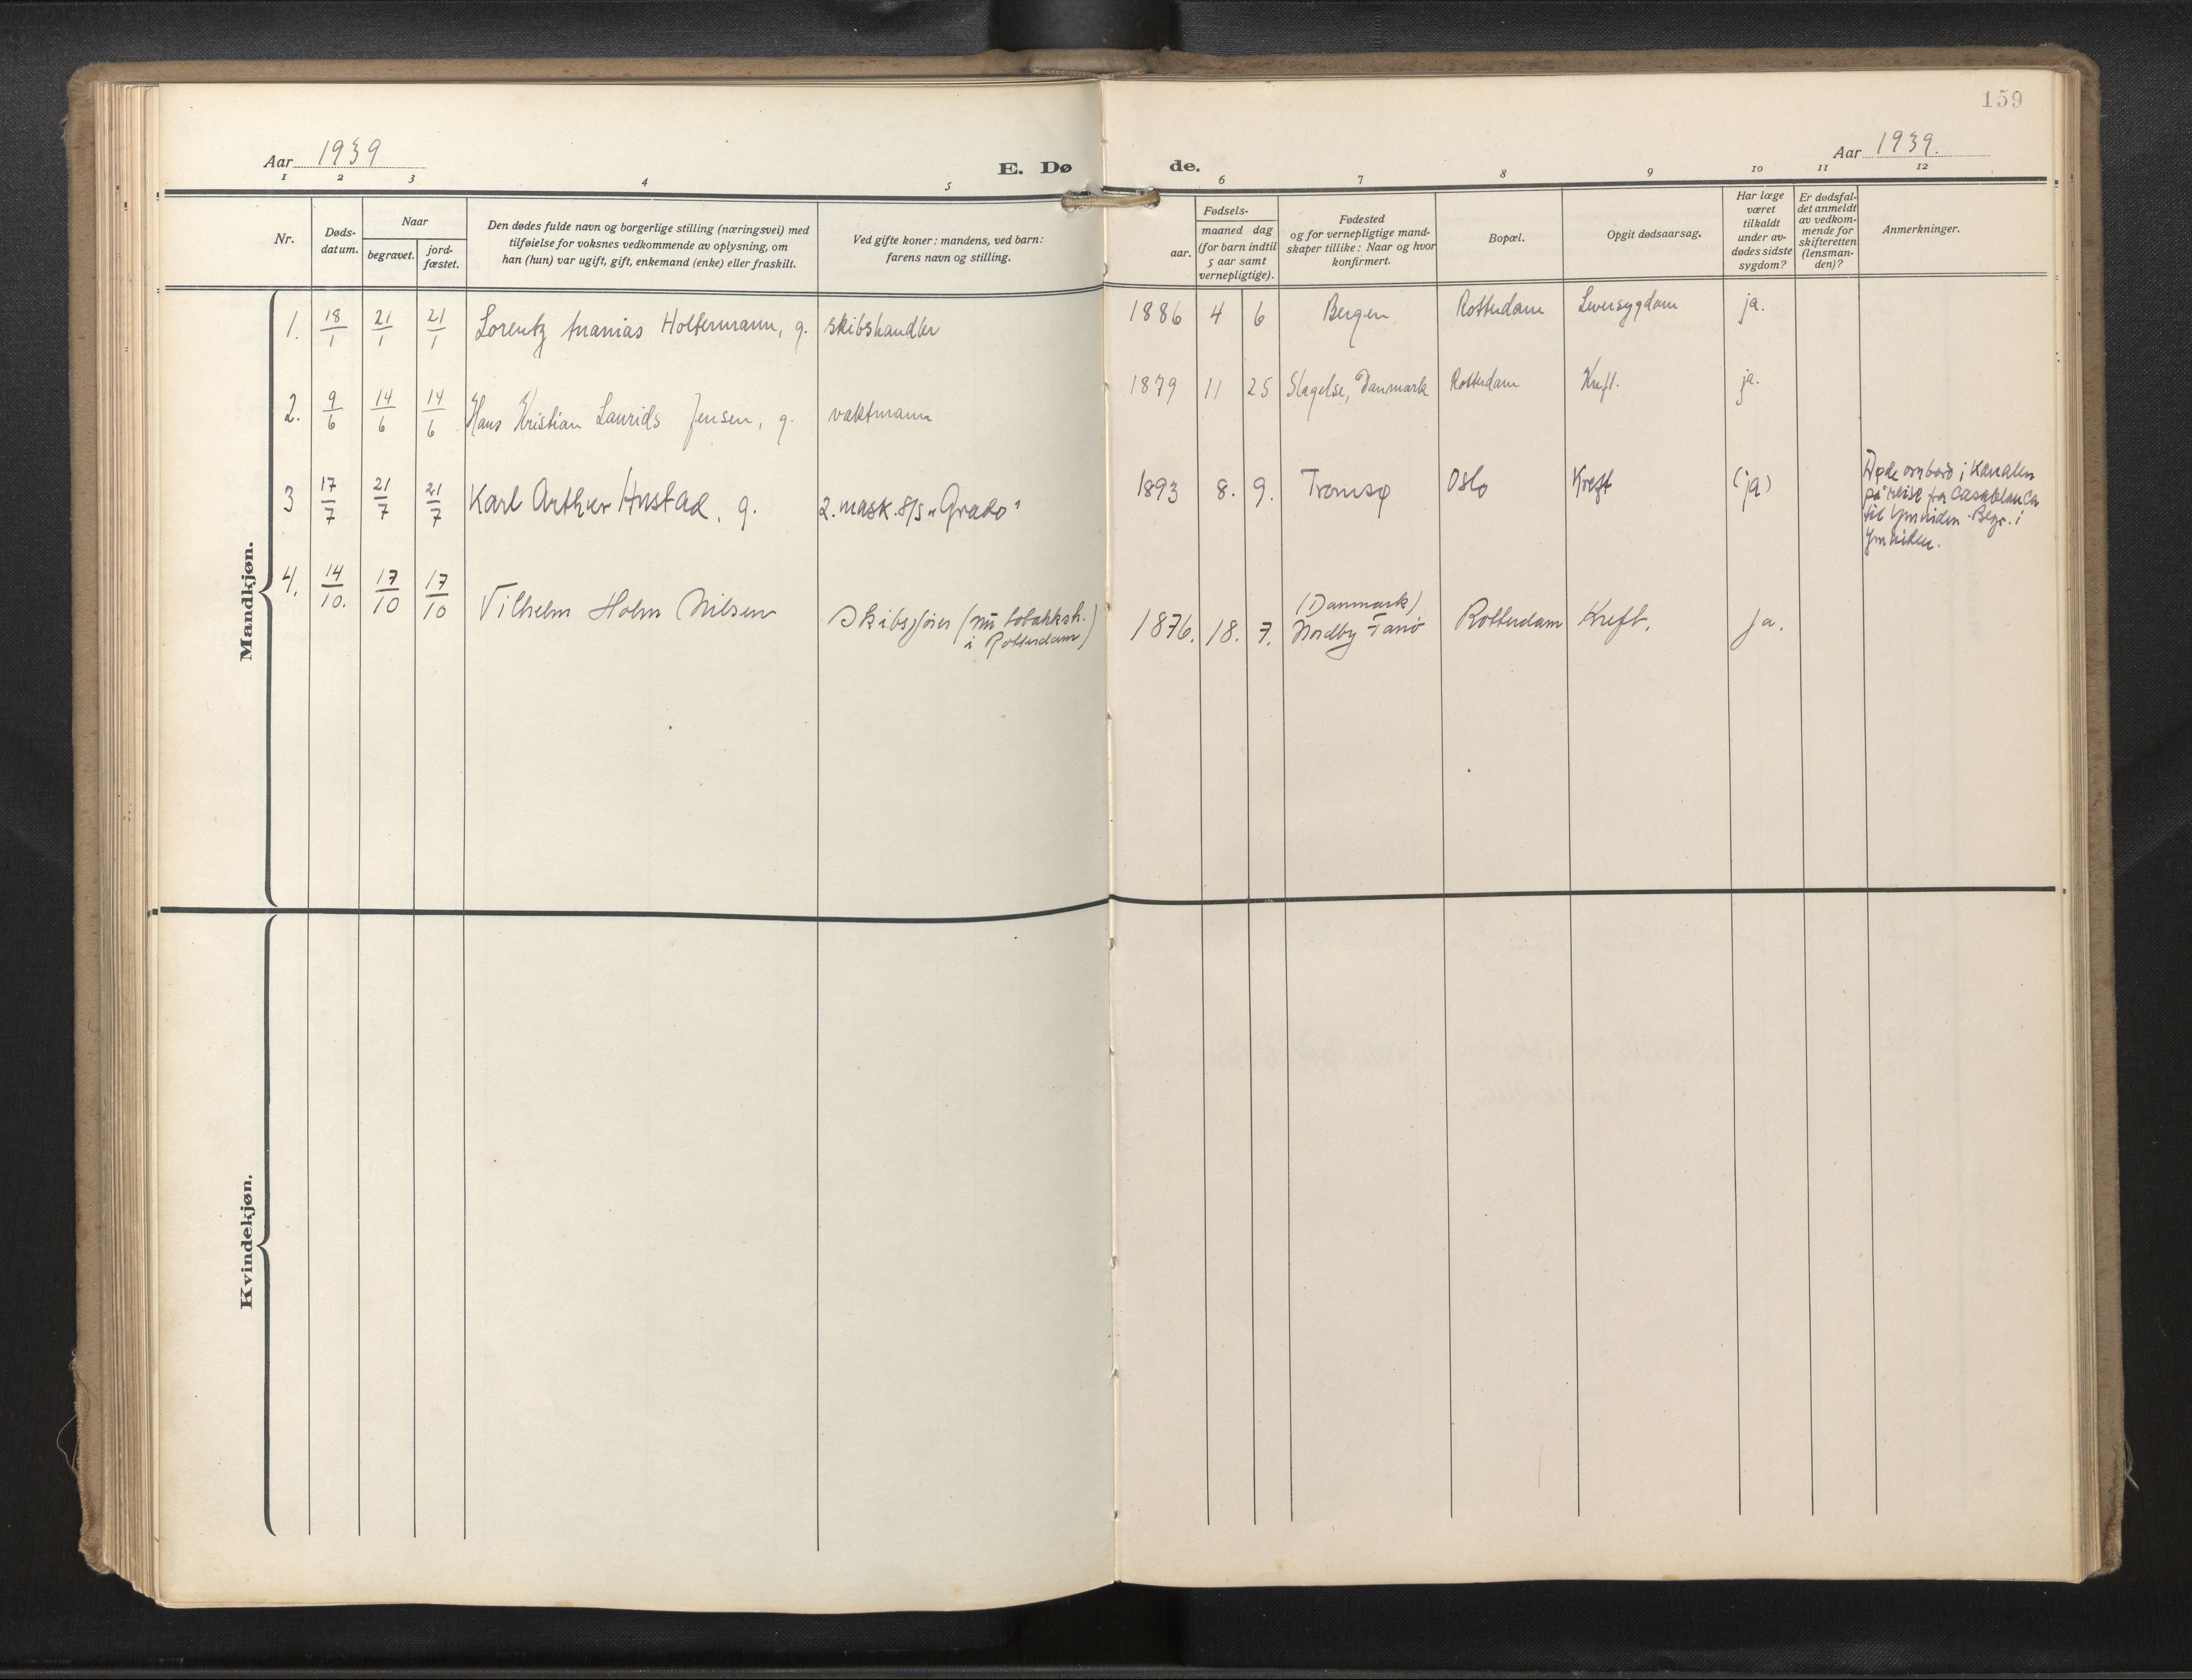 159
Aar 1939
E. Dø de.
Aar 1939.
1 2 3 4 5 6 7 8 9 10 11 12
Nr.
Døds-
datum.
Naar
begravet.
jord-
fæstet.
Den dødes fulde navn og borgerlige stilling (næringsvei) med
tilføielse for voksnes vedkommende av oplysning, om
han (hun) var ugift, gift, enkemand (enke) eller fraskilt.
Ved gifte koner: mandens, ved barn:
farens navn og stilling.
Fødsels-
aar.
maaned dag
(for barn indtil
5 aar samt
vernepligtige).
Fødested
og for vernepligtige mand-
skaper tillike: Naar og hvor
konfirmert.
Bopæl.
Opgit dødsaarsag.
Har læge
været
tilkaldt
under av-
dødes sidste
sygdom?
Er dødsfal-
det anmeldt
av vedkom-
mende for
skifteretten
(lensman-
den)?
Anmerkninger.
Mandkjøn.
1. 18/1 21/1 21/1 Lorentz Ananias Holtermann, g. skibshandler 1886 4 6 Bergen Rotterdam Leversygdom ja.
2. 9/6 14/6 14/6 Hans Kristian Laurids Jensen, g. vaktmann 1879 11 25 Slagelse, Danmark Rotterdam Kreft. ja.
3 17/7 21/7 21/7 Karl Arthur Hustad, g. 2. mask. S/S "Grado" 1893 8. 9. Tromsø Oslo Kreft (ja)
Døde ombord i Kanalen
på reise fra Casablanca
til Ymuiden. Begr. i
Ymuiden.
4. 14/10. 17/10 17/10 Vilhelm Holm Nilsen Skibsfører (nu tobakksh.
i Rotterdam)
1876. 18. 7. (Danmark)
Nordby Fanø Rotterdam Kreft. ja.
Kvindekjøn.